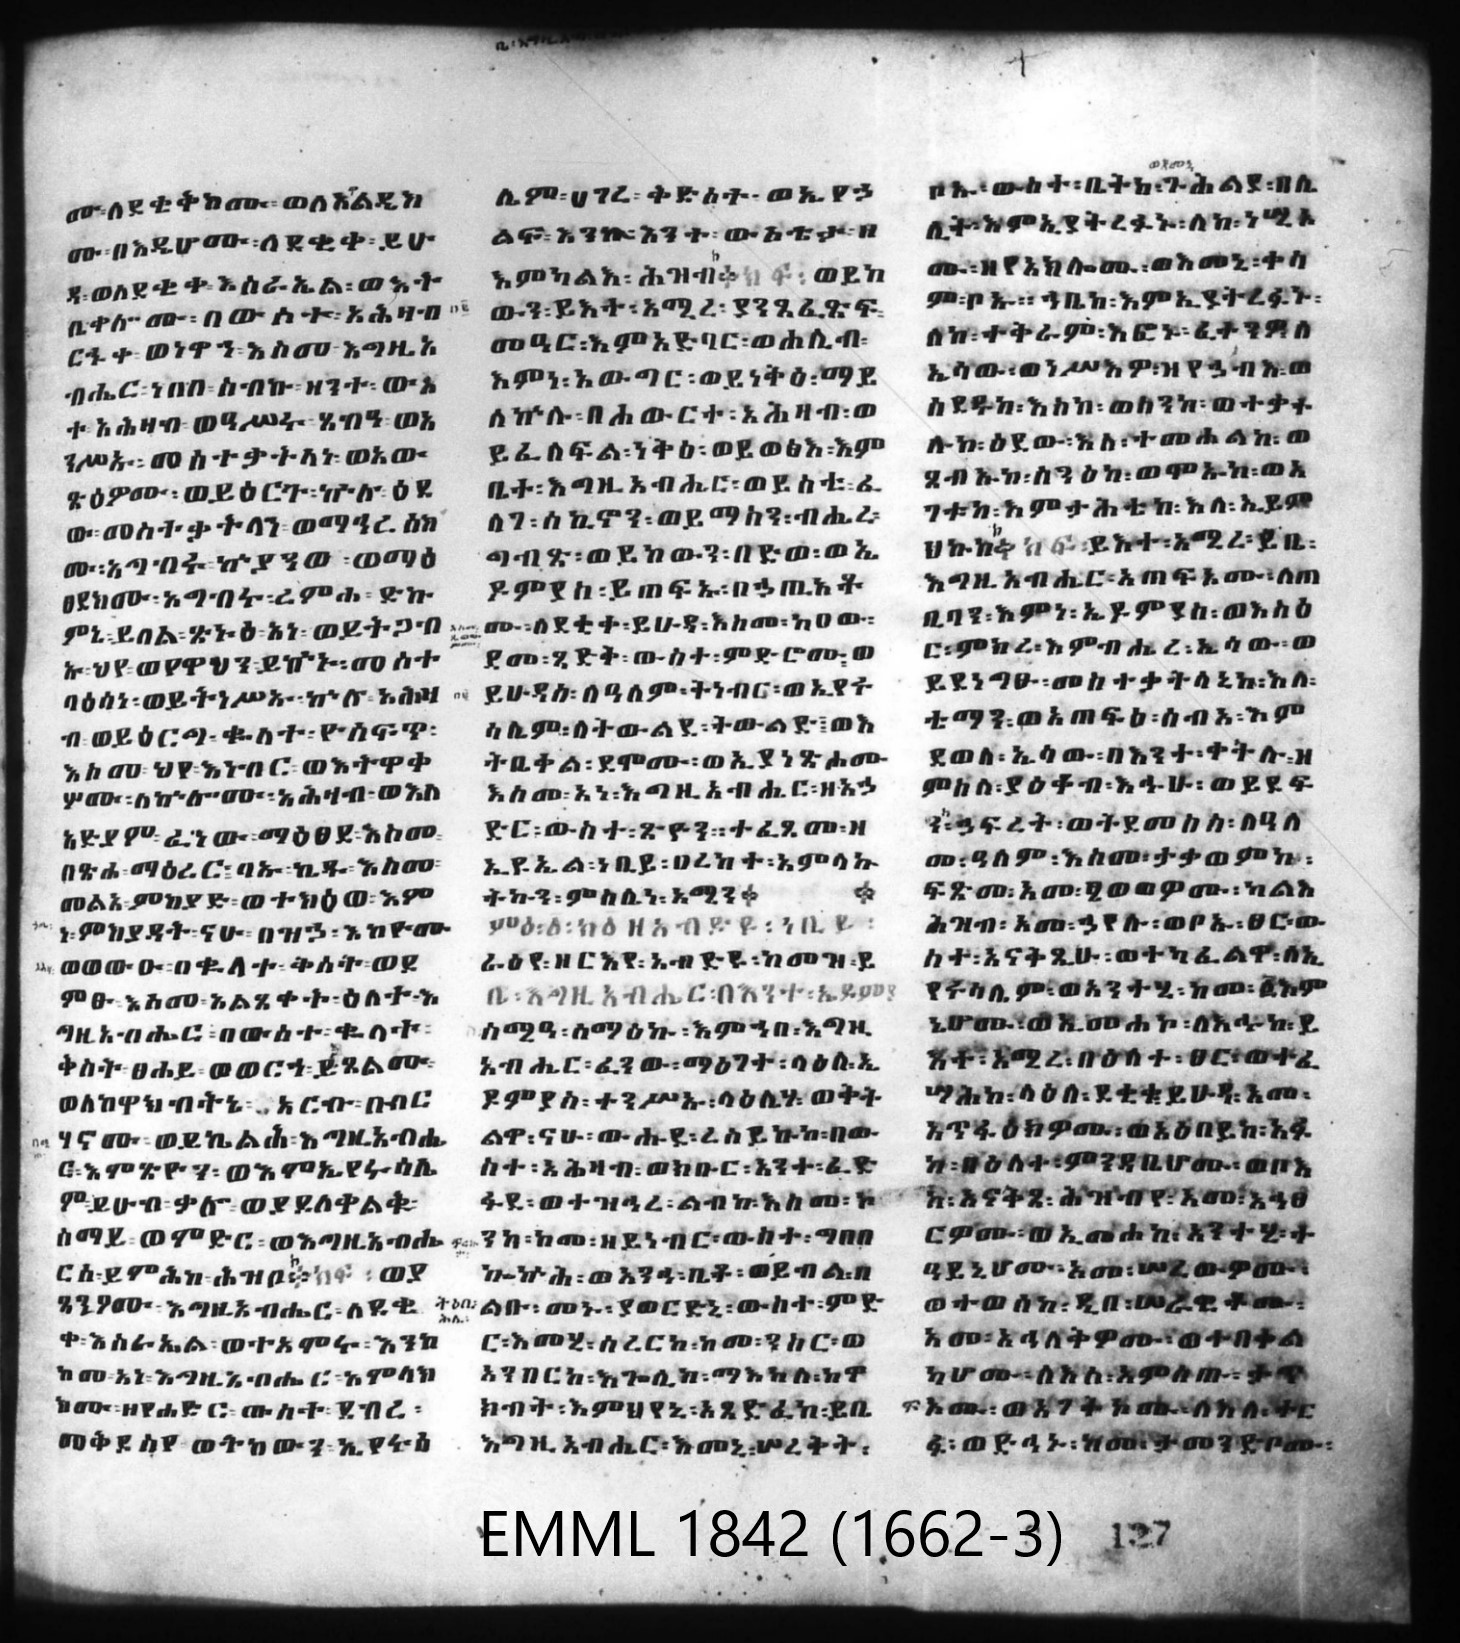 ሙ፡ለደቂቅክሙ፡ወለአልዲክ
ሙ፡በእዲሆሙ፡ለደቂቀ፡ይሁ
ዳ፡ወለደቂቀ፡እስራኤል፡ወእት
ቤቀሎሙ፡በውስተ፡አሕዛብ
ርኁቀ፡ወነዋኅ፡እስመ፡እግዚአ
ብሔር፡ነበበ፡ስብኩ፡ዘንተ፡ውእ
ተ፡አሕዛብ፡ወዓሥሩ፡ሄብዓ፡ወአ
ንሥኡ፡መስተቃትላነ፡ወአው
ጽዕዎሙ፡ወይዕርጉ፡ኵሉ፡ዕደ
ው፡መስተቃትላን፡ወማኅረስክ
ሙ፡አግብሩ፡ኵያንወ፡ወማዕ
ፀደክሙ፡አግብሩ፡ረምሐ፡ድኩ
ምኒ፡ይበል፡ጽኑዕ፡አነ፡ወይትጋብ
ኡ፡ህየ፡ወየዋህን፡ይኩኑ፡መስተ
ባዕሳነ፡ወይትነሥኡ፡ኵሉ፡አሕዛ
ብ፡ወይዕርጉ፡ቈላተ፡ዮሳፍጥ፡
እስመ፡ህየ፡እነብር፡ወእትዋቀ
ሦሙ፡ለኵሎሙ፡አሕዛብ፡ወእለ
አድያም፡ፈነው፡ማዕፀደ፡እስመ
በጽሐ፡ማዕረር፡ባኡ፡ኪዱ፡እስመ
መልአ፡ምክያድ፡ወተክዕወ፡እም
ነ፡ምክያዳት፡ናሁ፡በዝኃ፡እከዮሙ
ወወውዑ፡በቈላተ፡ቅስት፡ወደ
ምፁ፡እስመ፡አልጸቀት፡ዕለት፡እ
ግዚአብሔር፡በውስተ፡ቈላት፡
ቅስት፡ፀሐይ፡ወወርኅ፡ይጸልሙ
ወለከዋክብትኒ፡አርብ፡በብር
ሃኖሙ፡ወይኬልሕ፡እግዚአብሔ
ር፡እምጽዮን፡ወእምኢየሩሳሌ
ም፡ይሁብ፡ቃሎ፡ወያደለቀልቁ
ሰማይ፡ወምድር፡ወእግዚአብሔ
ርሰ፡ይምሕክ፡ሕዝቦ፡ክፍ፡ወያ
ጸንዖሙ፡እግዚአብሔር፡ለደቂ
ቀ፡እስራኤል፡ወተአምሩ፡እንከ
ከመ፡አነ፡እግዚአብሔር፡አምላክ
ክሙ፡ዘየሐድር፡ውስተ፡ደብረ፡
መቅደስየ፡ወትከውን፡ኢየሩሳ
ሌም፡ሀገረ፡ቅድስት፡ወኢየኃ
ልፍ፡እንከ፡እንተ፡ውእቲታ፡ዘ
እምካልእ፡ሕዝብ፡ክፍ፡ወይከ
ውን፡ይእተ፡አሚረ፡ያንጸፈጽፍ
መዓር፡እምአድባር፡ወሐሊብ፡
እምነ፡አውግር፡ወይነቅዕ፡ማይ
ለኵሉ፡በሐውርተ፡አሕዛብ፡ወ
ይፈለፍል፡ነቅዕ፡ወይወፅእ፡እም
ቤተ፡እግዚአብሔር፡ወይሰቂ፡ፈ
ለገ፡ሰኪኖን፡ወይማስን፡ብሔረ፡
ግብጽ፡ወይከውን፡በድወ፡ወኢ
ዶምያስ፡ይጠፍኡ፡በኃጢአቶ
ሙ፡ለደቂቀ፡ይሁዳ፡እስመ፡ከዐው፡
ደመ፡ጻድቅ፡ውስተ፡ምድሮሙ፡ወ
ይሁዳሰ፡ለዓለም፡ትነብር፡ወኢየሩ
ሳሌም፡ለትውልደ፡ትውልድ፡ወእ
ትቤቀል፡ደሞሙ፡ወኢያነጽሖሙ
እስመ፡አነ፡እግዚአብሔር፡ዘአኃ
ድር፡ውስተ፡ጽዮን፡፡ተፈጸመ፡ዘ
ኢዩኤል፡ነቢይ፡በረከተ፡አምላኩ
ትኩን፡ምስሌነ፡አሜን
ምዕ፡፭፡ክዕ፡ዘአብድዩ፡ነቢይ፡
ራዕየ፡ዘርእየ፡አብድዩ፡ከመዝ፡ይ
ቤ፡እግዚአብሔር፡በእንተ፡ኤዶምያ
ሰሚዓ፡ሰማዕኩ፡እምኀበ፡እግዚ
አብሔር፡ፈነወ፡ማዕገተ፡ሳዕለ፡ኢ
ዶምያስ፡ተንሥኡ፡ሳዕሌሃ፡ወቅት
ልዋ፡ናሁ፡ውሑደ፡ረሰይኩከ፡በው
ስተ፡አሕዛብ፡ወክቡር፡አንተ፡ፈድ
ፋደ፡ወተዝኅረ፡ልብከ፡እስመ፡ኮ
ንከ፡ከመ፡ዘይነብር፡ውስተ፡ግበበ
ኰኵሕ፡ወአንኀ፡ቤቶ፡ወይብል፡በ
ልቡ፡መኑ፡ያወርድኒ፡ውስተ፡ምድ
ር፡እመሂ፡ሰረርከ፡ከመ፡ንስር፡ወ
አንበርከ፡እጐሊከ፡ማእከለ፡ከዋ
ክብት፡እምህየኒ፡አጸድፈከ፡ይቤ
እግዚአብሔር፡እመኒ፡ሠረቅት፡
ቦኡ፡ውስተ፡ቤትከ፡ጉሕልደ፡በሌ
ሊት፡እምኢያትረፉኑ፡ለከ፡ነሚአ
ሙ፡ዘየአክሎሙ፡ወእመኒ፡ቀሳ
ም፡ቦኡ፡፡ኀቤከ፡እምኢያትረፉኑ፡
ለከ፡ተቅራም፡እፎኑ፡ፈተንዎ፡ለ
ኤሳው፡ወነሥእዎ፡ዝየኃብእ፡ወ
ሰደዱከ፡እስከ፡ወሰንከ፡ወተቃት
ሉከ፡ዕደው፡እለ፡ተመሐልከ፡ወ
ጸብኡከ፡ሰንዕከ፡ወሞኡከ፡ወአ
ገቱከ፡እምታሕቴከ፡እለ፡ኢይም
ህኩከ፡ክፍ፡ይእተ፡አሚረ፡ይቤ፡
እግዚአብሔር፡አጠፍአሙ፡ለጠ
ቢባን፡እምነ፡ኢዶምያስ፡ወእስዕ
ር፡ምክረ፡እምብሔረ፡ኤሳው፡ወ
ይደነግፁ፡መስተቃትላኒከ፡እለ፡
ቴማን፡ወአጠፍዕ፡ሰብአ፡እም
ደወለ፡ኤሳው፡በእንተ፡ቀትሉ፡ዘ
ምስለ፡ያዕቆብ፡እኁሁ፡ወይደፍ
ን፡ኃፍረት፡ወትደመሰስ፡ለዓለ
መ፡ዓለም፡እስመ፡ታቃወምከ፡
ፍጽመ፡አመ፡ፄወወዎሙ፡ካልእ
ሕዝብ፡አመ፡ኃየሉ፡ወቦኡ፡ፀር፡ው
ስተ፡አናቅጺሁ፡ወተካፈልዋ፡ለኢ
የሩሳሌም፡ወአንተሂ፡ከመ፡፩እም
ኔሆሙ፡ወኢመሐኮ፡ለእኁከ፡ይ
እተ፡አሚረ፡በዕለተ፡ፀር፡ወተፈ
ሣሕከ፡ላዕለ፡ደቂቂ፡ይሁዳ፡አመ፡
አጥፋዕክዎሙ፡ወአዕበይከ፡አፉ
ከ፡በዕለተ፡ምንዳቤሆሙ፡ወቦእ
ከ፡አናቅጸ፡ሕዝብየ፡አመ፡አኅፀ
ርዎሙ፡ወኢመሐከ፡አንተሂ፡ት
ዓይኒሆሙ፡አመ፡ሠረውዎሙ፡
ወተወሰከ፡ዲበ፡ሠራዊቶሙ፡
አመ፡አኅለቅዎሙ፡ወተበቀል
ካሆሙ፡ለእለ፡አምሰጡ፡ታጥ
እሙ፡ወአገትኮሙ፡ለእለ፡ተር
ፉ፡ወድኅኑ፡ከመ፡ታመንድቦሙ፡
EMML 1842 (1662-3)
127